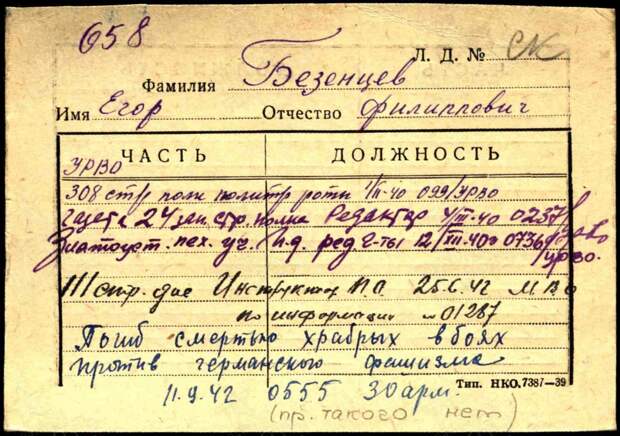 658
Л. Д. № СК
Фамилия Безенцев
Имя Егор Отчество Филиппович
ЧАСТЬ ДОЛЖНОСТЬ
УРВО
308 стр полк политр роты 1/III-40 099/УРВО
Газета 24 зап. стр. полка Редактор 4/III-40 0237/
Златоуст. пех. уч. И.д. ред г-ты 12/XII-40г 0736/
УРВО.
111 стр. див Инструктор П.О. 25.6.42 МВО
по информации №01287
Погиб смертью храбрых в боях
против германского фашизма
11.9.42 0555 30 арм.
Тип. НКО. 7387—39
(пр. такого нет)